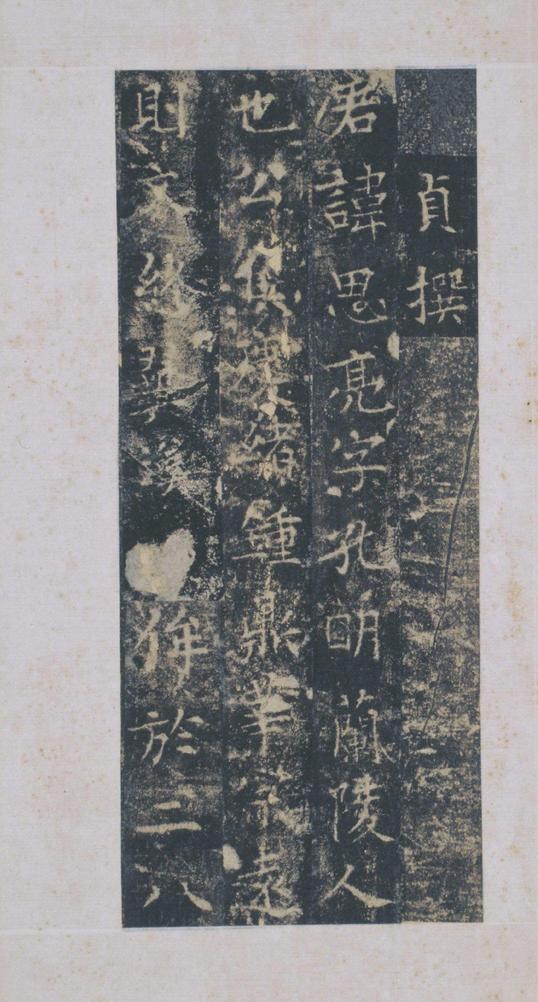 貞撰
君諱思亮字孔眀蘭陵人
也公侯累緒鍾鼎華宗遠
則文終漢侔於二八